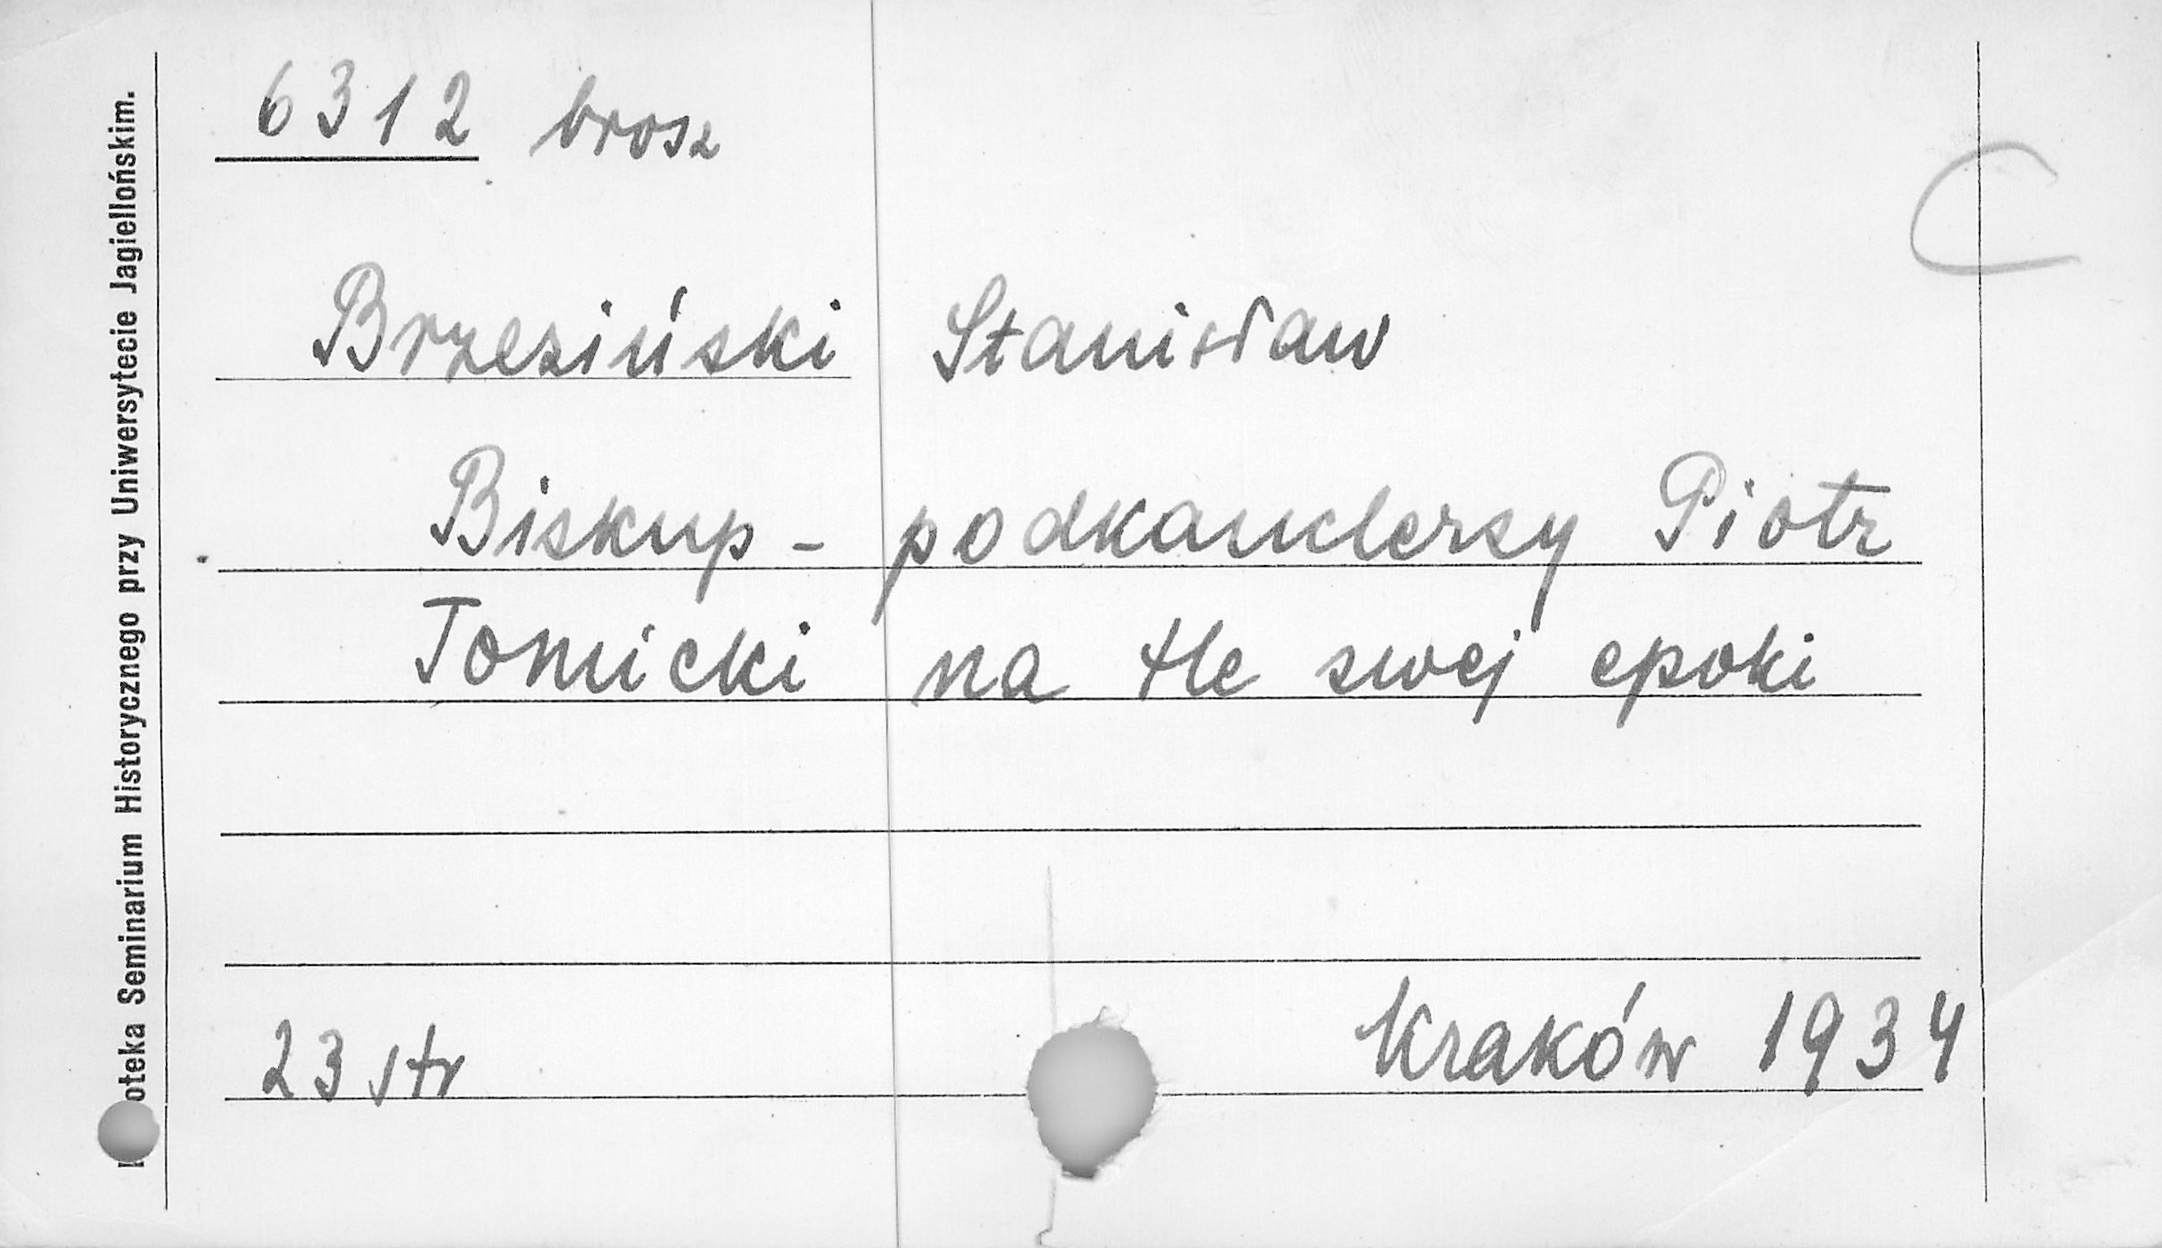 6312 brosz
C
Brzeziński Stanisław
Biskup - podkanclerzy Piotr
Tomicki na tle swej epoki
23 str Kraków 1934
oteka Seminarium Historycznego przy Uniwersytecie Jagiellońskim.